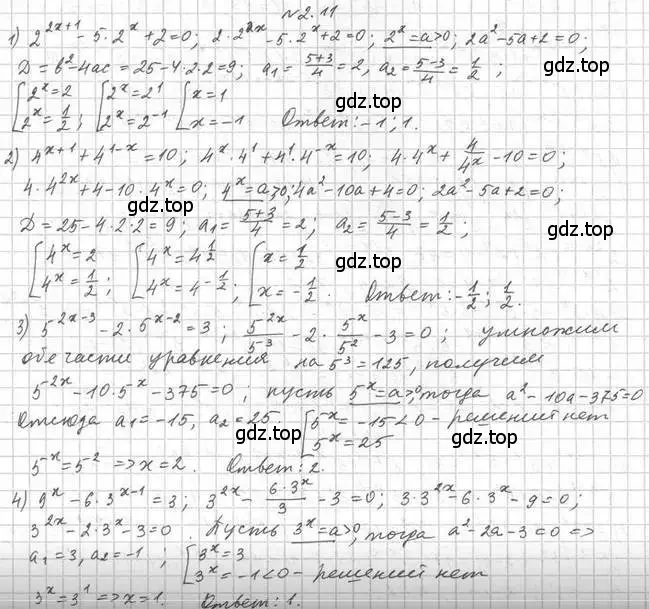 №2.11
1) 2^{2x+1} - 5·2^x + 2 = 0; 2·2^{2x} - 5·2^x + 2 = 0; 2^x = a > 0; 2a² - 5a + 2 = 0;
D = b² - 4ac = 25 - 4·2·2 = 9; a₁ = (5+3)/4 = 2, a₂ = (5-3)/4 = 1/2;
gdz.top
gdz.top
[2^x = 2
2^x = 1/2; [2^x = 2¹
2^x = 2^{-1} [x = 1
x = -1 Ответ: -1; 1.
2) 4^{x+1} + 4^{1-x} = 10; 4^x·4¹ + 4¹·4^{-x} = 10; 4·4^x + 4/4^x - 10 = 0;
4·4^{2x} + 4 - 10·4^x = 0; 4^x = a > 0; 4a² - 10a + 4 = 0; 2a² - 5a + 2 = 0;
gdz.top
gdz.top
D = 25 - 4·2·2 = 9; a₁ = (5+3)/4 = 2; a₂ = (5-3)/4 = 1/2;
gdz.top
[4^x = 2
4^x = 1/2; [4^x = 4^{1/2}
4^x = 4^{-1/2}; [x = 1/2
x = -1/2. Ответ: -1/2; 1/2.
3) 5^{2x-3} - 2·5^{x-2} = 3; 5^{2x}/5³ - 2·5^x/5² - 3 = 0; умножим
gdz.top
обе части уравнения на 5³ = 125, получим
5^{2x} - 10·5^x - 375 = 0; пусть 5^x = a > 0, тогда a² - 10a - 375 = 0
gdz.top
Отсюда a₁ = -15, a₂ = 25 [5^x = -15 < 0 - решений нет
5^x = 25
gdz.top
gdz.top
5^x = 5² => x = 2. Ответ: 2.
4) 9^x - 6·3^{x-1} = 3; 3^{2x} - 6·3^x/3 - 3 = 0; 3·3^{2x} - 6·3^x - 9 = 0;
3^{2x} - 2·3^x - 3 = 0. Пусть 3^x = a > 0, тогда a² - 2a - 3 = 0 =>
gdz.top
gdz.top
a₁ = 3, a₂ = -1; [3^x = 3
3^x = -1 < 0 - решений нет
3^x = 3¹ => x = 1. Ответ: 1.